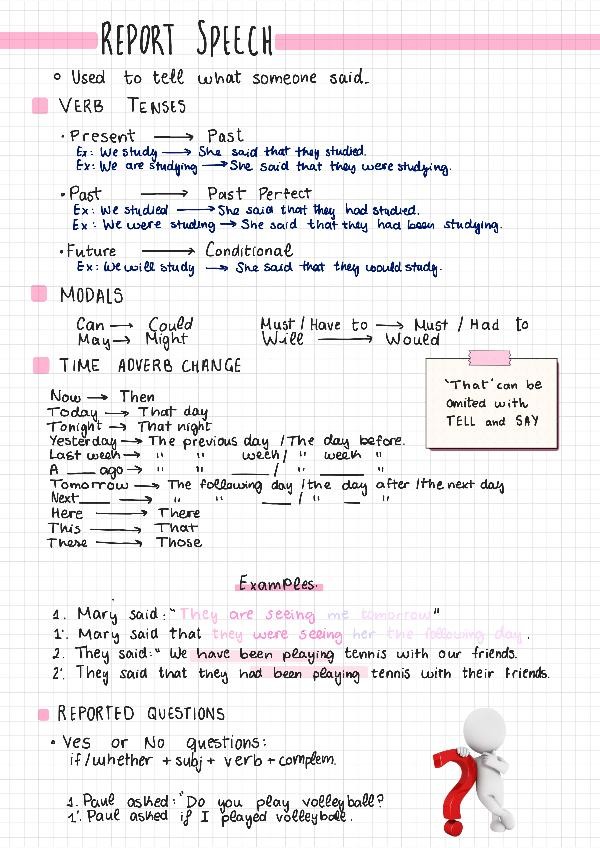 REPORT SPEECH
Used to tell what someone said.
VERB TENSES
• Present → Past
Ex: We study → She said that they studied.
Ex: We are studying → She said that they were studying.
• Past → Past Perfect
Ex: We studied → She said that they had studied.
Ex: We were studing → She said that they had been studying.
• Future → Conditional
Ex: We will study → She said that they would study.
MODALS
Can → Could Must / Have to → Must / Had to
May → Might Will → Would
TIME ADVERB CHANGE
'That' can be
omited with
TELL and SAY
Now → Then
Today → That day
Tonight → That night
Yesterday → The previous day / The day before.
Last week → " " week / " week "
A ___ ago → " " ___ / " ___ "
Tomorrow → The following day / the day after / the next day
Next ___ → " " ___ / " ___ "
Here → There
This → That
These → Those
Examples.
1. Mary said: "They are seeing me tomorrow"
1'. Mary said that they were seeing her the following day.
2. They said: " We have been playing tennis with our friends.
2'. They said that they had been playing tennis with their friends.
REPORTED QUESTIONS
• Yes or No questions:
if / whether + subj + verb + complem.
1. Paul asked: "Do you play volleyball?
1'. Paul asked if I played volleyball.